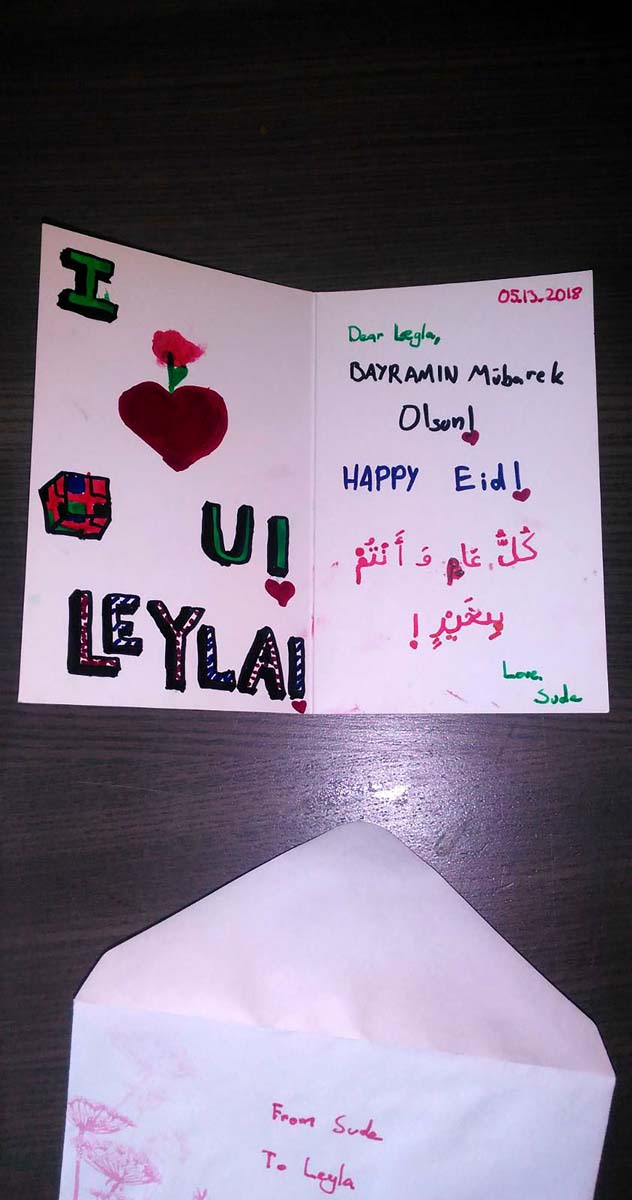 I
U!
LEYLA!
05.13.2018
Dear Leyla,
BAYRAMIN Mübarek
Olsun!
HAPPY Eid!
كُلُّ عَامٍ وَ أَنْتُمْ
بِخَيْرٍ !
Love,
Sude
From Sude
To Leyla